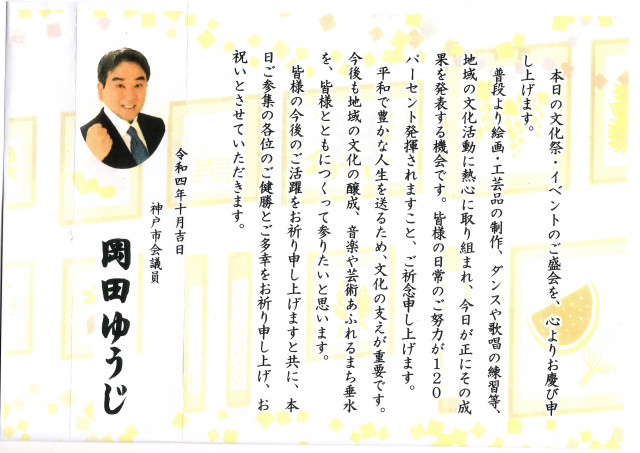 本日の文化祭・イベントのご盛会を、心よりお慶び申
し上げます。
普段より絵画・工芸品の制作、ダンスや歌唱の練習等、
地域の文化活動に熱心に取り組まれ、今日が正にその成
果を発表する機会です。皆様の日常のご努力が120
パーセント発揮されますこと、ご祈念申し上げます。
平和で豊かな人生を送るため、文化の支えが重要です。
今後も地域の文化の醸成、音楽や芸術あふれるまち垂水
を、皆様とともにつくって参りたいと思います。
皆様の今後のご活躍をお祈り申し上げますと共に、本
日ご参集の各位のご健勝とご多幸をお祈り申し上げ、お
祝いとさせていただきます。
令和四年十月吉日
神戸市会議員
岡田ゆうじ